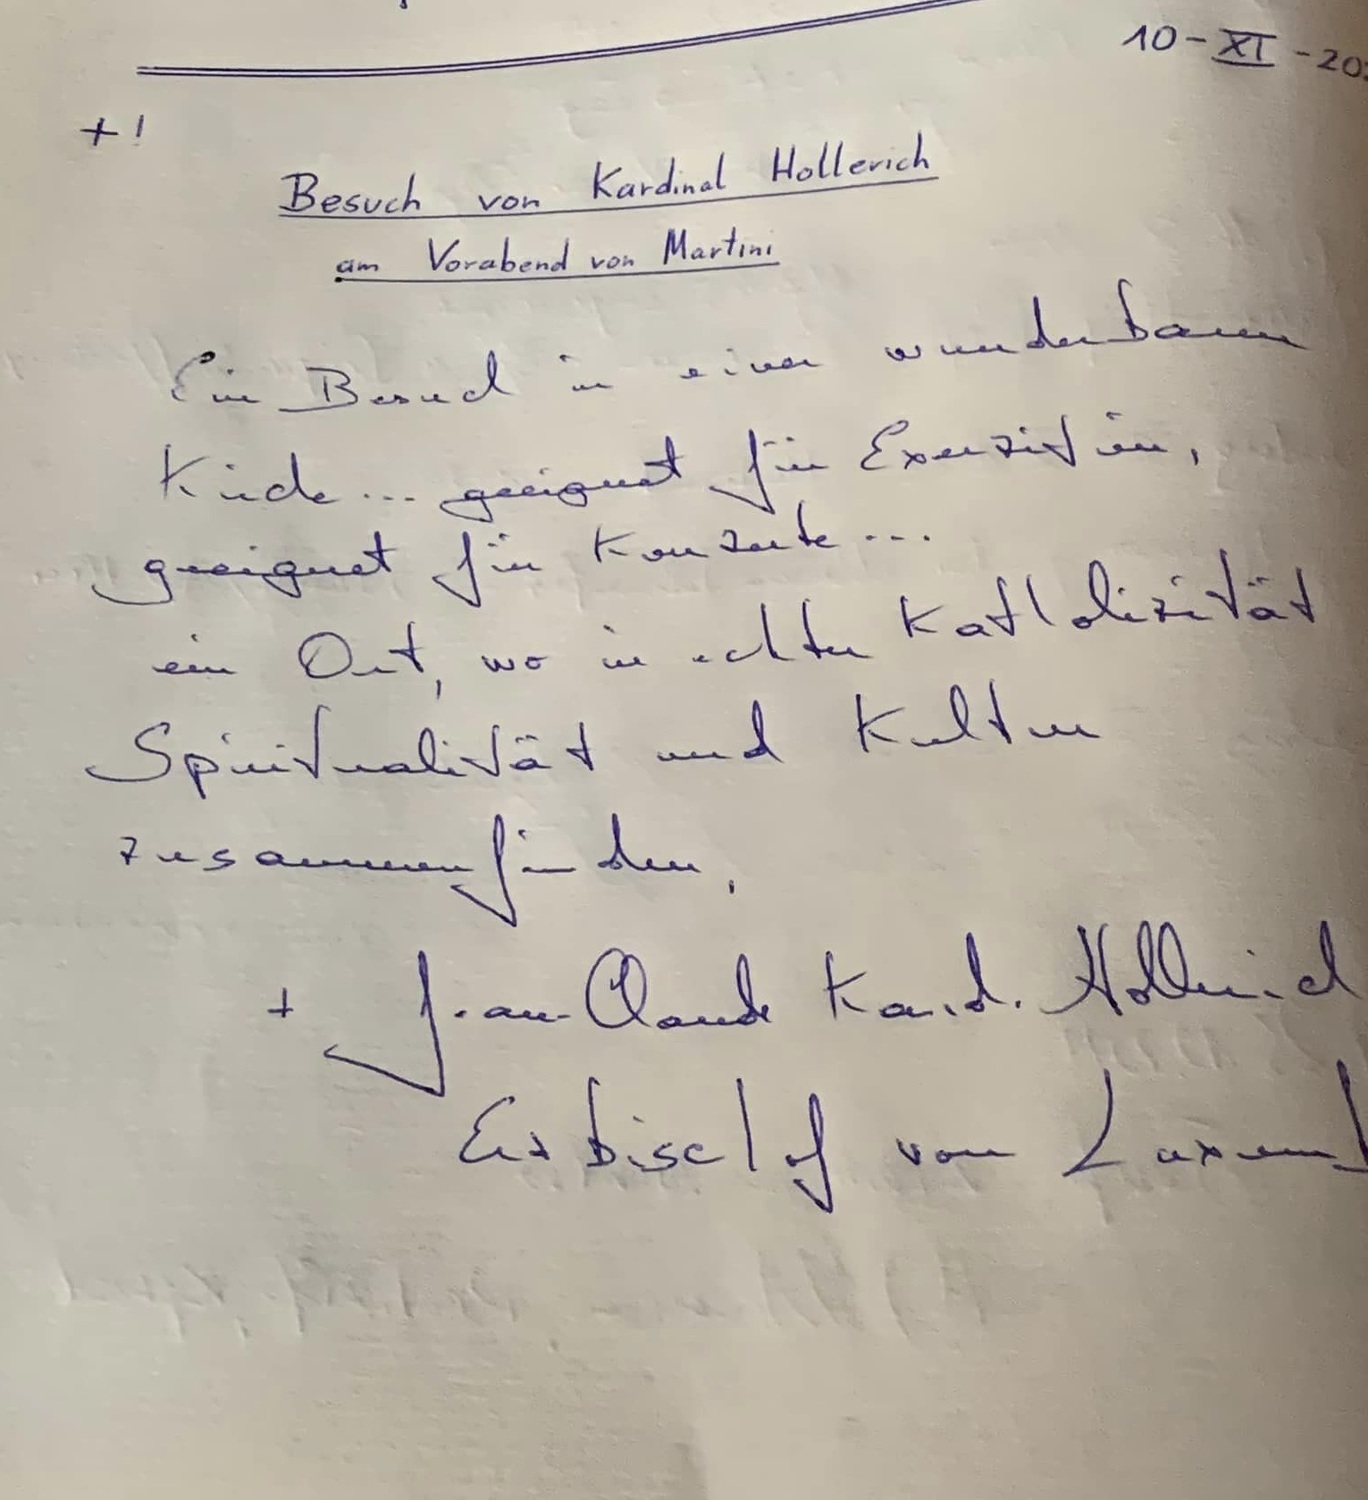 10-XI-20
+!
Besuch von Kardinal Hollerich
am Vorabend von Martini
Ein Besuch in einer wunderbaren
Kirche... geeignet für Exerzitien,
geeignet für Konzerte...
ein Ort, wo in echter Katholizität
Spiritualität und Kultur
zusammenfinden,
+ Jean-Claude Kard. Hollerich
Erzbischof von Luxemb